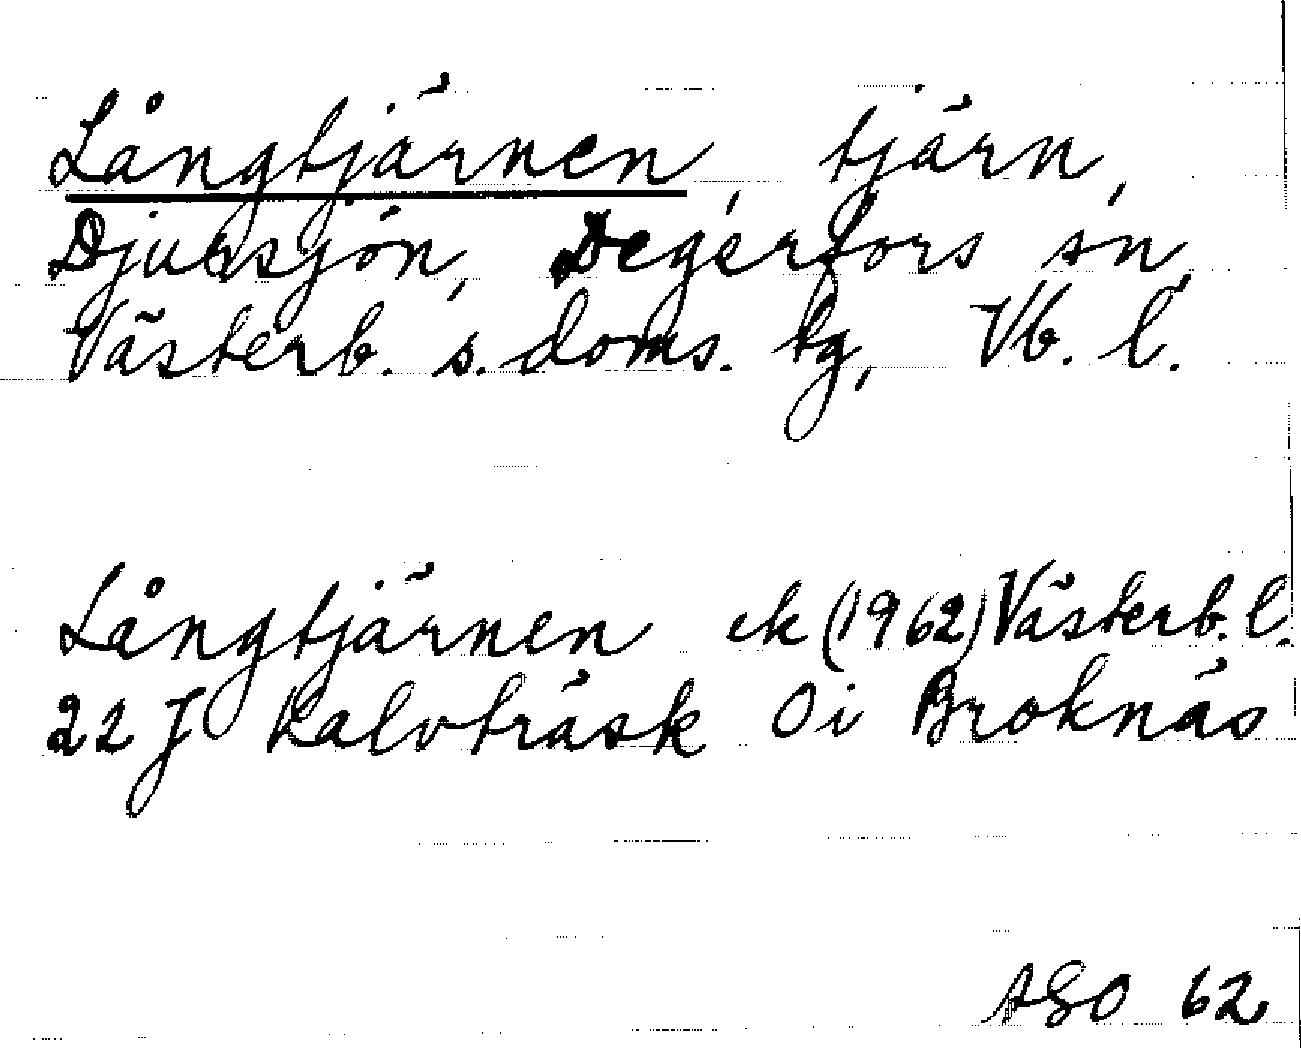 Långtjärnen, tjärn,
Djursjön, Degerfors sn,
Västerb. s. doms. tg, Vb. l.
Långtjärnen ek (1962) Västerb. l.
22 J Kalvträsk 0 i Broknäs
ASO 62